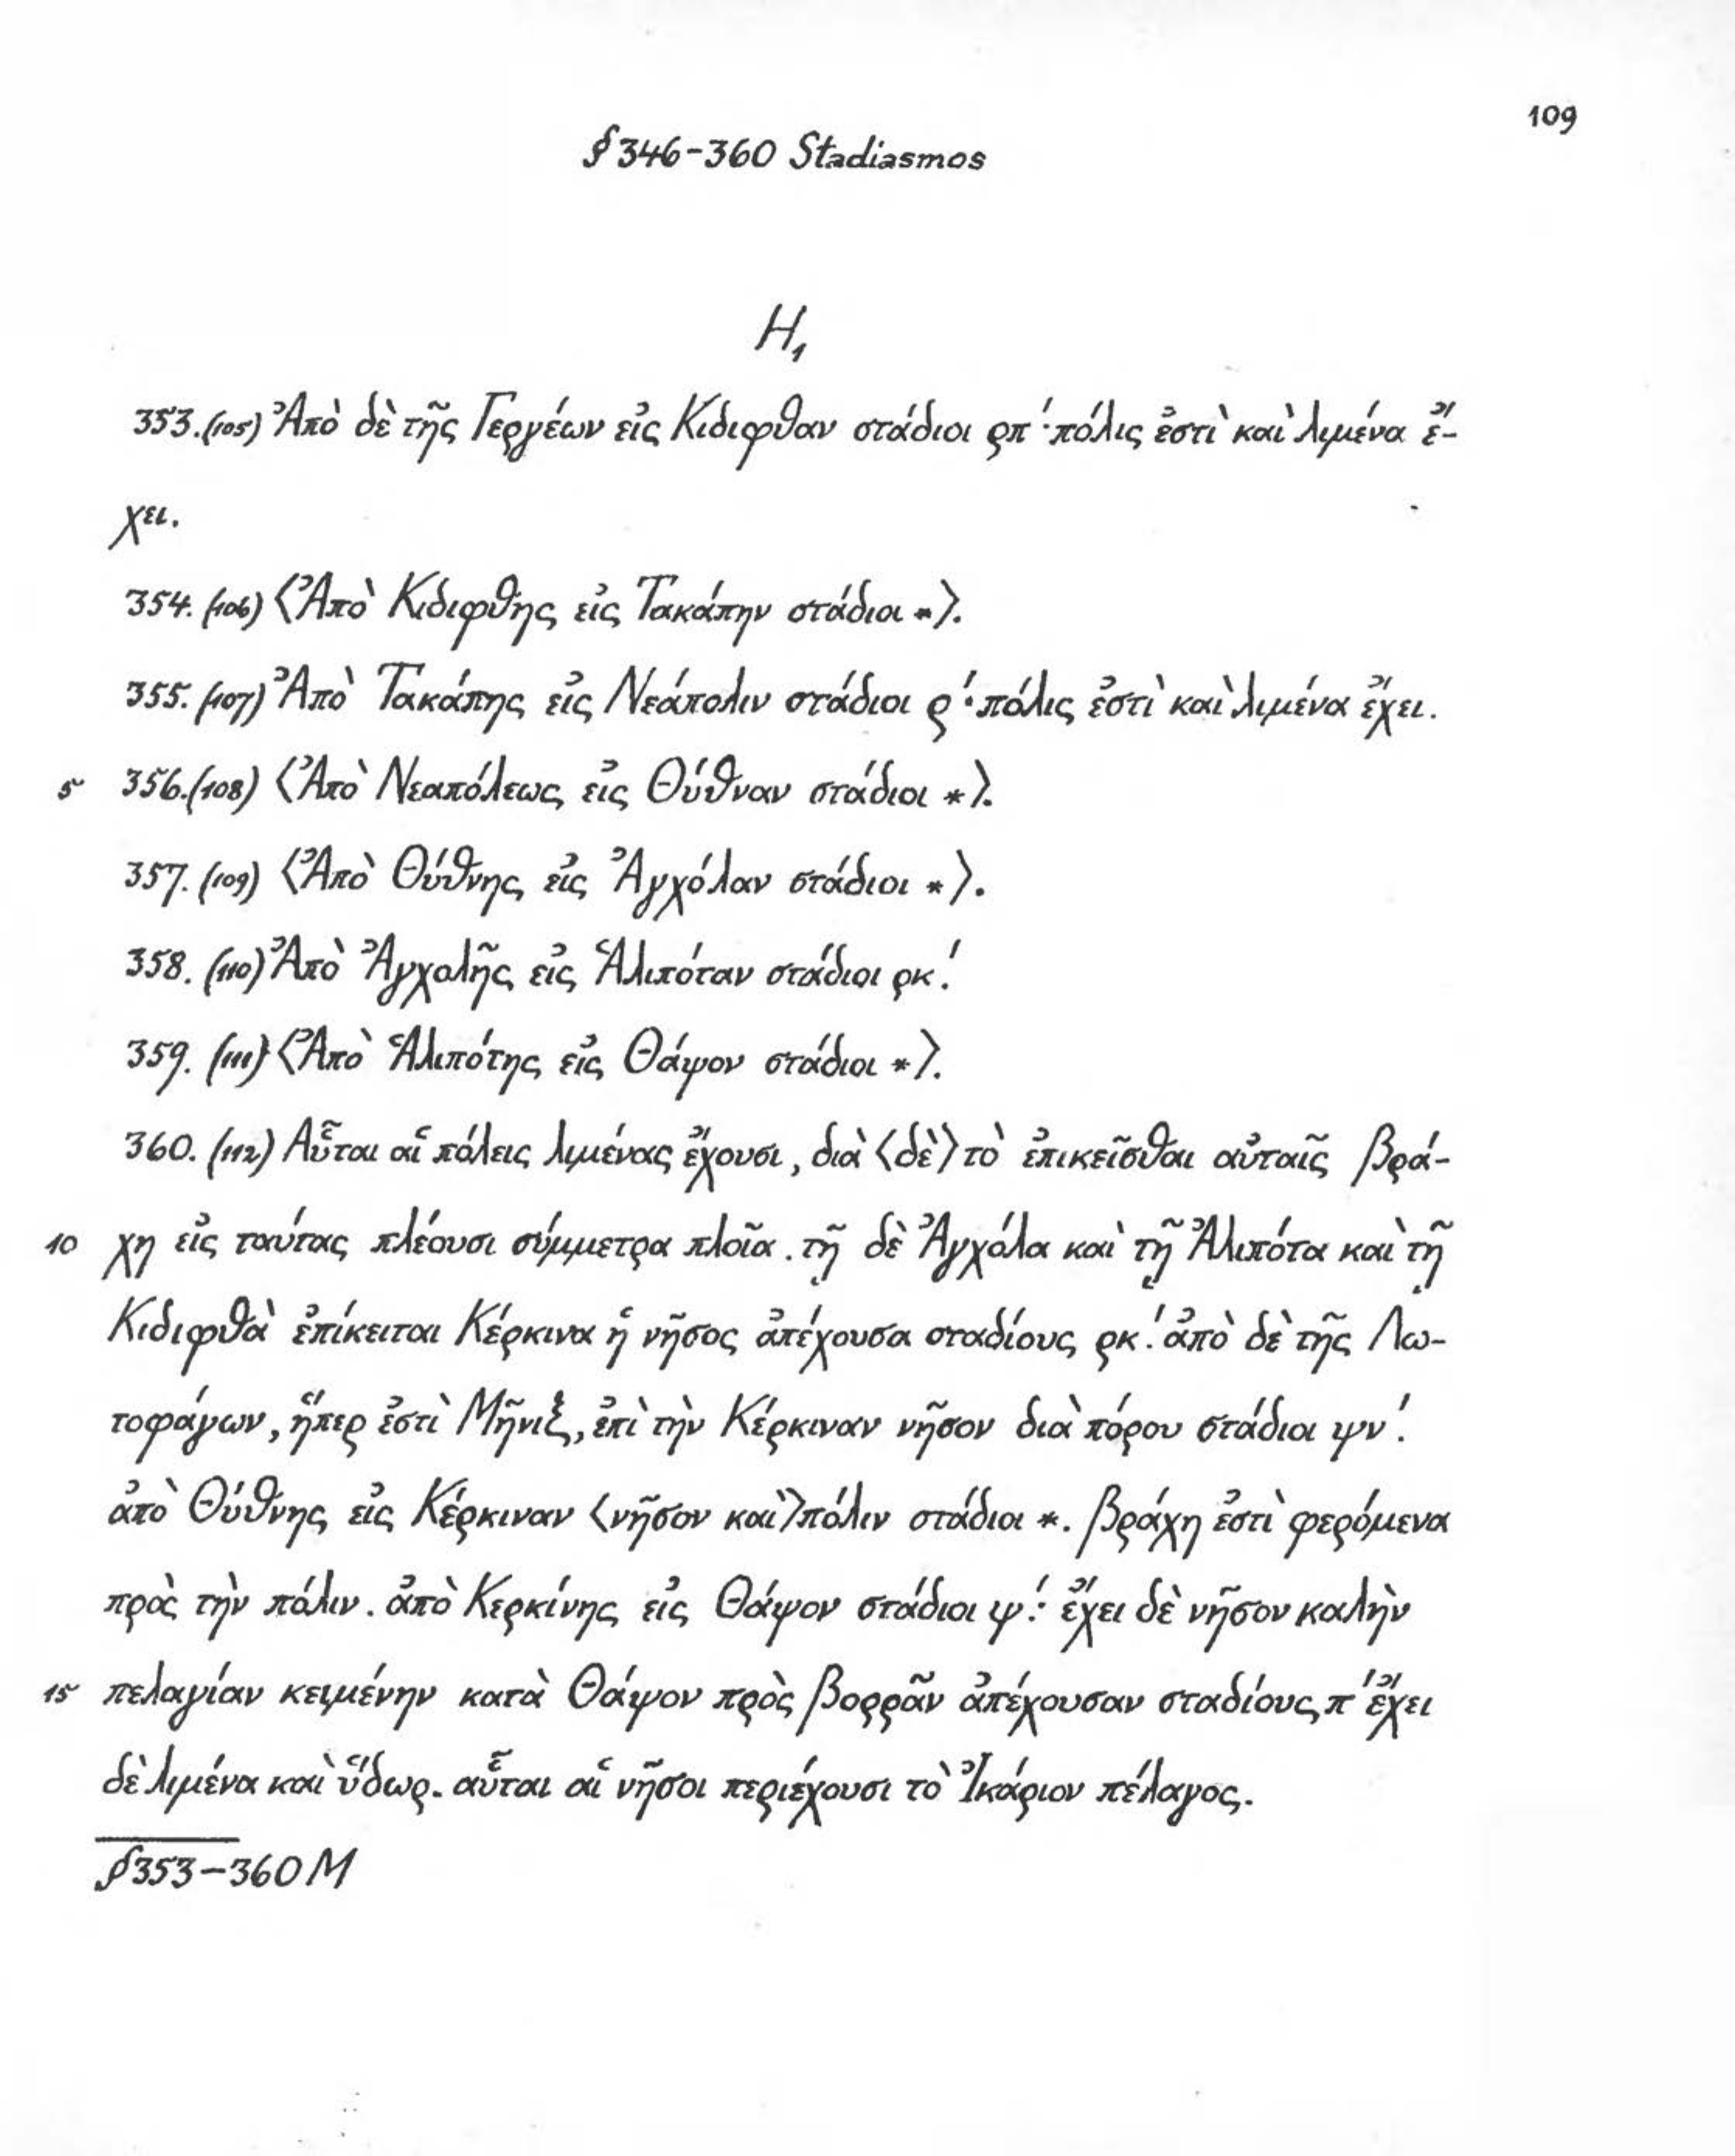 109
§ 346-360 Stadiasmos
H₁
353. (105) Ἀπὸ δὲ τῆς Γεργέων εἰς Κιδιφθαν στάδιοι ϱπ´· πόλις ἐστὶ καὶ λιμένα ἔ-
χει.
354. (106) 〈Ἀπὸ Κιδιφθῆς εἰς Τακάπην στάδιοι *〉.
355. (107) Ἀπὸ Τακάπης εἰς Νεάπολιν στάδιοι ϱ´· πόλις ἐστὶ καὶ λιμένα ἔχει.
5 356. (108) 〈Ἀπὸ Νεαπόλεως εἰς Θύθναν στάδιοι *〉.
357. (109) 〈Ἀπὸ Θύθνης εἰς Ἀγχόλαν στάδιοι *〉.
358. (110) Ἀπὸ Ἀγχολῆς εἰς Ἁλιπόταν στάδιοι ϱκ´.
359. (111) 〈Ἀπὸ Ἁλιπότης εἰς Θάψον στάδιοι *〉.
360. (112) Αὗται αἱ πόλεις λιμένας ἔχουσι, διὰ 〈δὲ〉 τὸ ἐπικεῖσθαι αὐταῖς βρά-
10 χη εἰς ταύτας πλέουσι σύμμετρα πλοῖα. τῇ δὲ Ἀγχόλα καὶ τῇ Ἀλιπότα καὶ τῇ
Κιδιφθὰ ἐπίκειται Κέρκινα ἡ νῆσος ἀπέχουσα σταδίους ϱκ´. ἀπὸ δὲ τῆς Λω-
τοφάγων, ἥπερ ἐστὶ Μῆνιξ, ἐπὶ τὴν Κέρκιναν νῆσον διὰ πόρου στάδιοι ψν´.
ἀπὸ Θύθνης εἰς Κέρκιναν 〈νῆσον καὶ〉 πόλιν στάδιοι *. βράχη ἐστὶ φερόμενα
πρὸς τὴν πόλιν. ἀπὸ Κερκίνης εἰς Θάψον στάδιοι ψ´· ἔχει δὲ νῆσον καλὴν
15 πελαγίαν κειμένην κατὰ Θάψον πρὸς βορρᾶν ἀπέχουσαν σταδίους π´ ἔχει
δὲ λιμένα καὶ ὕδωρ. αὗται αἱ νῆσοι περιέχουσι τὸ Ἰκάριον πέλαγος.
§ 353-360 M